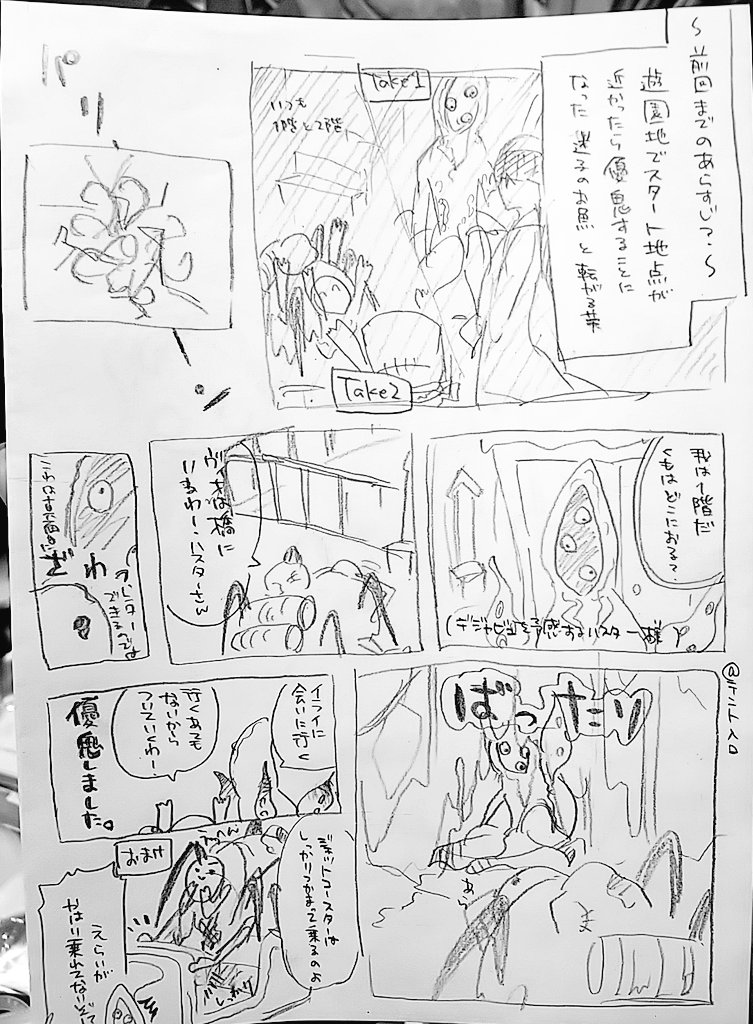 ～前回までのあらすじ？～
遊園地でスタート地点が
近かったら優鬼することに
なった迷子のお魚と転がる芋
Take1
いつも
1階と2階
Take2
パリーン
我は1階だ
くもはどこにおる？
(デジャビュを予感するハスター様)
ヴィオは橋に
いまわー、ハスターさん
ざわ
@テント入口
ばったり
あら
イライに
会いに行く
行くあても
ないから
ついていくわー
優鬼しました。
おまけ
ジェットコースターは
しっかりつかまって乗るのよ
しっかり
えらいが
やはい乗れてないぞて